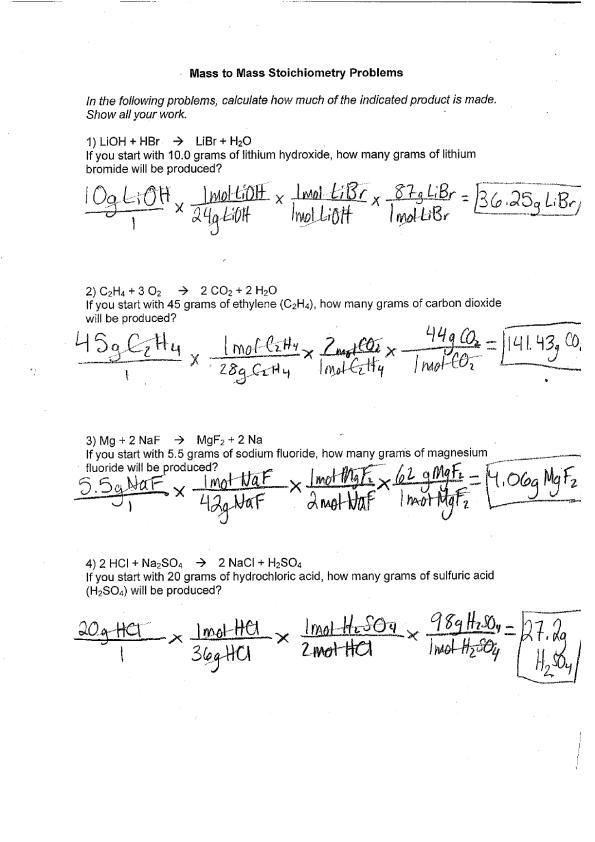 Mass to Mass Stoichiometry Problems
In the following problems, calculate how much of the indicated product is made.
Show all your work.
1) LiOH + HBr → LiBr + H₂O
If you start with 10.0 grams of lithium hydroxide, how many grams of lithium
bromide will be produced?
10g LiOH/1 × 1mol LiOH/24g LiOH × 1mol LiBr/1mol LiOH × 87g LiBr/1mol LiBr = 36.25g LiBr
2) C₂H₄ + 3 O₂ → 2 CO₂ + 2 H₂O
If you start with 45 grams of ethylene (C₂H₄), how many grams of carbon dioxide
will be produced?
45g C₂H₄/1 × 1mol C₂H₄/28g C₂H₄ × 2mol CO₂/1mol C₂H₄ × 44g CO₂/1mol CO₂ = 141.43g CO
3) Mg + 2 NaF → MgF₂ + 2 Na
If you start with 5.5 grams of sodium fluoride, how many grams of magnesium
fluoride will be produced?
5.5g NaF/1 × 1mol NaF/42g NaF × 1mol MgF₂/2mol NaF × 62 gMgF₂/1mol MgF₂ = 4.06g MgF₂
4) 2 HCl + Na₂SO₄ → 2 NaCl + H₂SO₄
If you start with 20 grams of hydrochloric acid, how many grams of sulfuric acid
(H₂SO₄) will be produced?
20g HCl/1 × 1mol HCl/36g HCl × 1mol H₂SO₄/2mol HCl × 98g H₂SO₄/1mol H₂SO₄ = 27.2g
H₂SO₄